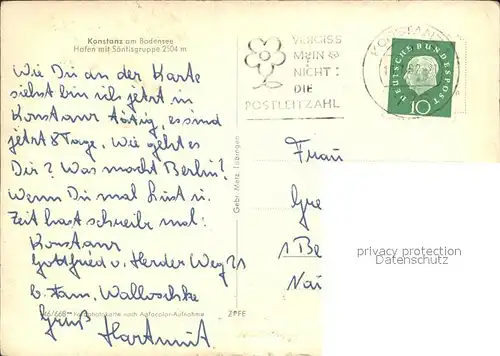 Konstanz am Bodensee
Hafen mit Säntisgruppe 2504 m
Wie Du an der Karte
siehst bin ich jetzt in
Konstanz tätig, es sind
jetzt 8 Tage. Wie geht es
Dir? Was macht Berlin?
Wenn Du mal Lust u.
Zeit hast schreibe mal:
Konstanz
Gottfried v. Herder Weg 21
b. Fam. Walloschke
Gruß
Hartmut
46/668 Farbphotokarte nach Agfacolor-Aufnahme ZPFE
Gebr. Metz, Tübingen
VERGISS
MEIN
NICHT:
DIE
POSTLEITZAHL
KONSTANZ
DEUTSCHE BUNDESPOST
10
Frau
Gre
1 Be
Nau
privacy protection
Datenschutz